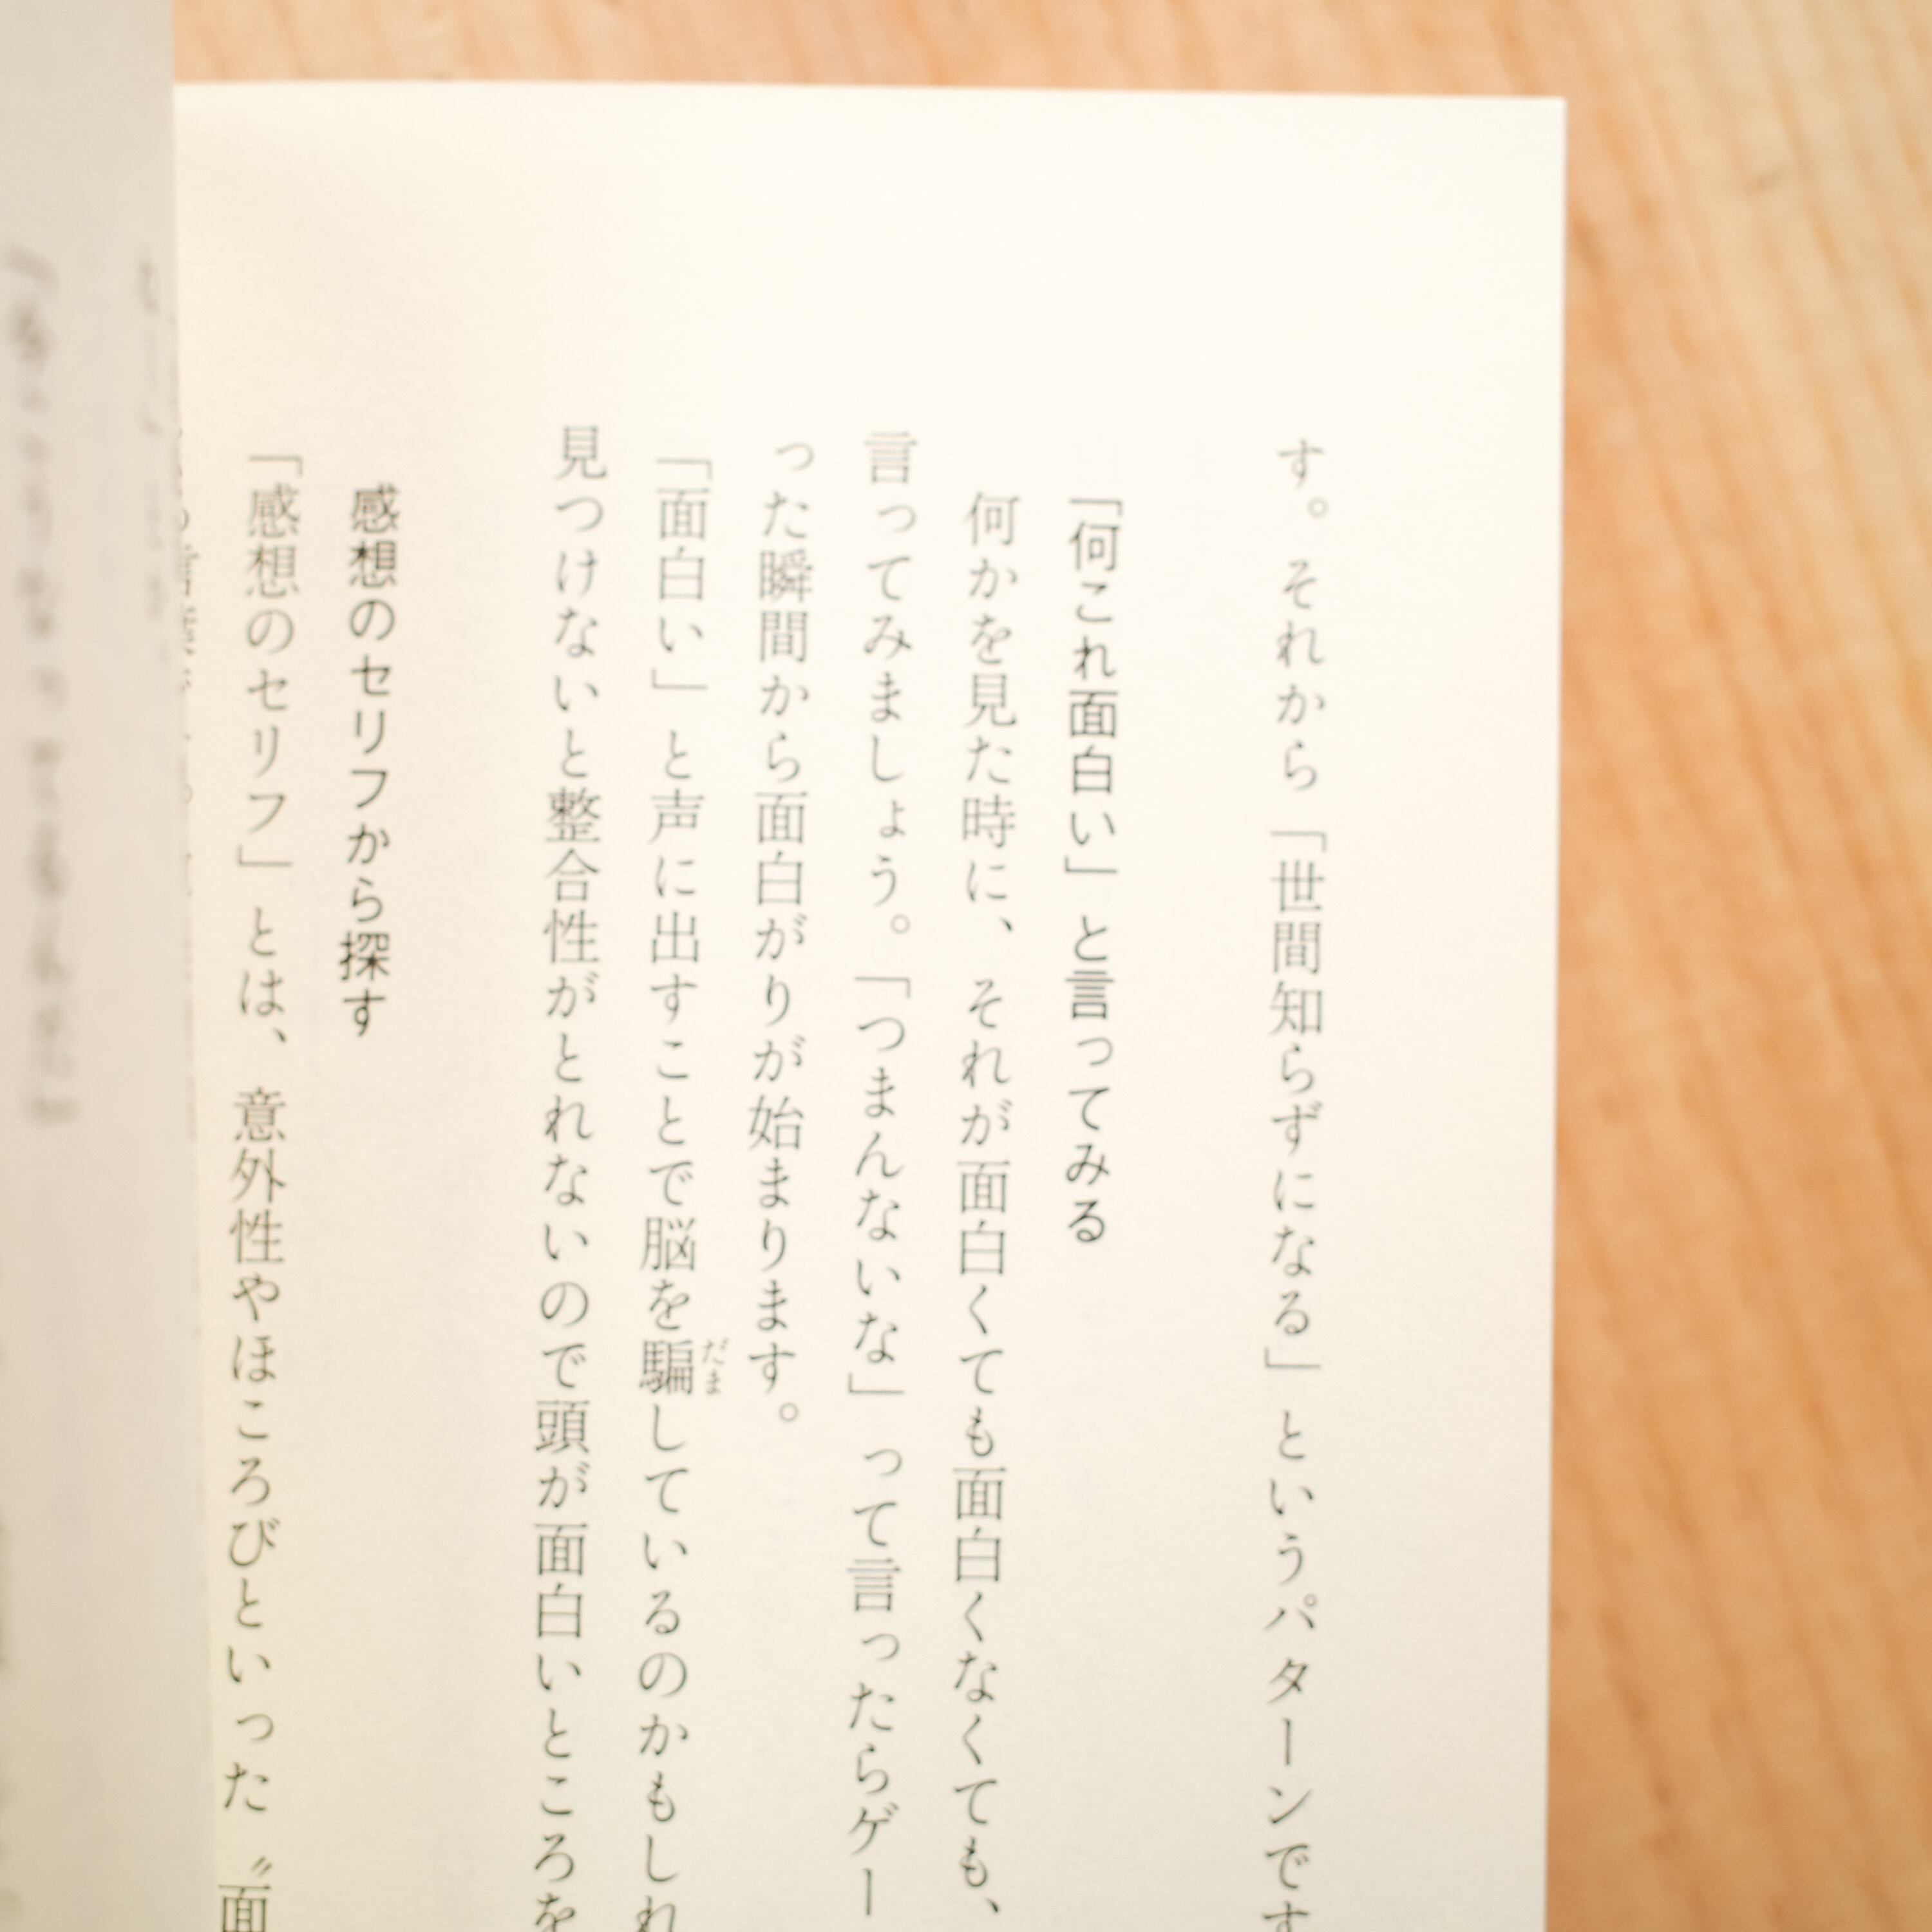 す。それから「世間知らずになる」というパターンです
「何これ面白い」と言ってみる
何かを見た時に、それが面白くても面白くなくても、
言ってみましょう。「つまんないな」って言ったらゲー
った瞬間から面白がりが始まります。
「面白い」と声に出すことで脳を騙だましているのかもしれ
見つけないと整合性がとれないので頭が面白いところを
感想のセリフから探す
「感想のセリフ」とは、意外性やほころびといった〝面